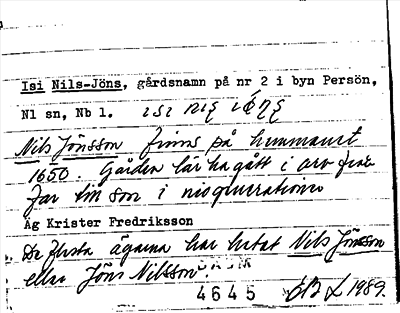 Isi Nils-Jöns, gårdsnamn på nr 2 i byn Persön,
Nl sn, Nb l.
Nils Jönsson finns på hemmanet
1650. Gården lär ha gått i arv från
far till son i nio generationer
Äg Krister Fredriksson
De flesta ägarna har hetat Nils Jönsson
eller Jöns Nilsson
4645 1989.